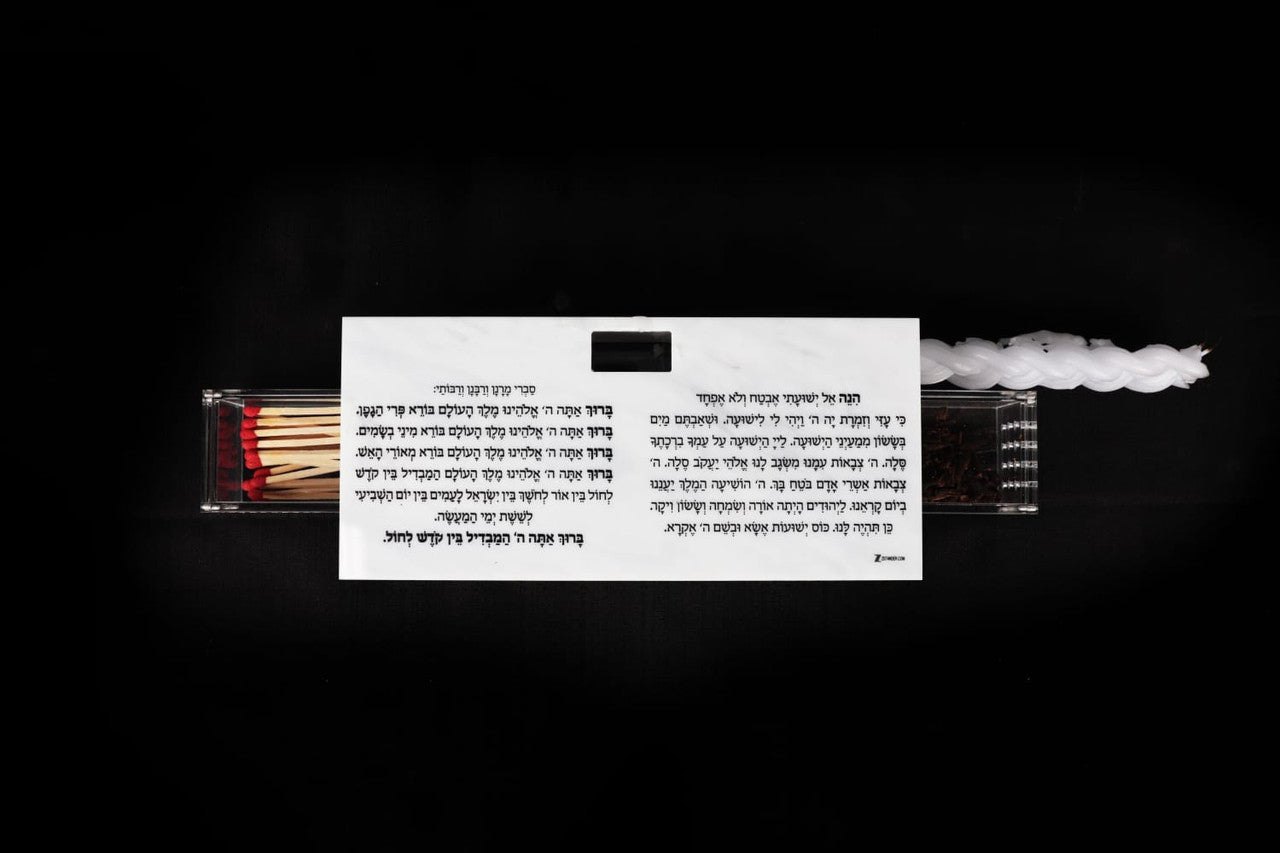 הִנֵּה אֵל יְשׁוּעָתִי אֶבְטַח וְלֹא אֶפְחָד
כִּי עָזִּי וְזִמְרָת יָהּ ה׳ וַיְהִי לִי לִישׁוּעָה. וּשְׁאַבְתֶּם מַיִם
בְּשָׂשׂוֹן מִמַּעַיְנֵי הַיְשׁוּעָה. לַייָ הַיְשׁוּעָה עַל עַמְּךָ בִרְכָתֶךָ
סֶּלָה. ה׳ צְבָאוֹת עִמָּנוּ מִשְׂגָּב לָנוּ אֱלֹהֵי יַעֲקֹב סֶלָה. ה׳
צְבָאוֹת אַשְׁרֵי אָדָם בֹּטֵחַ בָּךְ. ה׳ הוֹשִׁיעָה הַמֶּלֶךְ יַעֲנֵנוּ
בְיוֹם קָרְאֵנוּ. לַיְּהוּדִים הָיְתָה אוֹרָה וְשִׂמְחָה וְשָׂשׂוֹן וִיקָר.
כֵּן תִּהְיֶה לָּנוּ. כּוֹס יְשׁוּעוֹת אֶשָּׂא וּבְשֵׁם ה׳ אֶקְרָא.
ZEITWINDER.COM
סַבְרִי מָרָנָן וְרַבָּנָן וְרַבּוֹתַי:
בָּרוּךְ אַתָּה ה׳ אֱלֹהֵינוּ מֶלֶךְ הָעוֹלָם בּוֹרֵא פְּרִי הַגָּפֶן.
בָּרוּךְ אַתָּה ה׳ אֱלֹהֵינוּ מֶלֶךְ הָעוֹלָם בּוֹרֵא מִינֵי בְשָׂמִים.
בָּרוּךְ אַתָּה ה׳ אֱלֹהֵינוּ מֶלֶךְ הָעוֹלָם בּוֹרֵא מְאוֹרֵי הָאֵשׁ.
בָּרוּךְ אַתָּה ה׳ אֱלֹהֵינוּ מֶלֶךְ הָעוֹלָם הַמַּבְדִּיל בֵּין קֹדֶשׁ
לְחוֹל בֵּין אוֹר לְחֹשֶׁךְ בֵּין יִשְׂרָאֵל לָעַמִּים בֵּין יוֹם הַשְּׁבִיעִי
לְשֵׁשֶׁת יְמֵי הַמַּעֲשֶׂה.
בָּרוּךְ אַתָּה ה׳ הַמַּבְדִּיל בֵּין קֹדֶשׁ לְחוֹל.